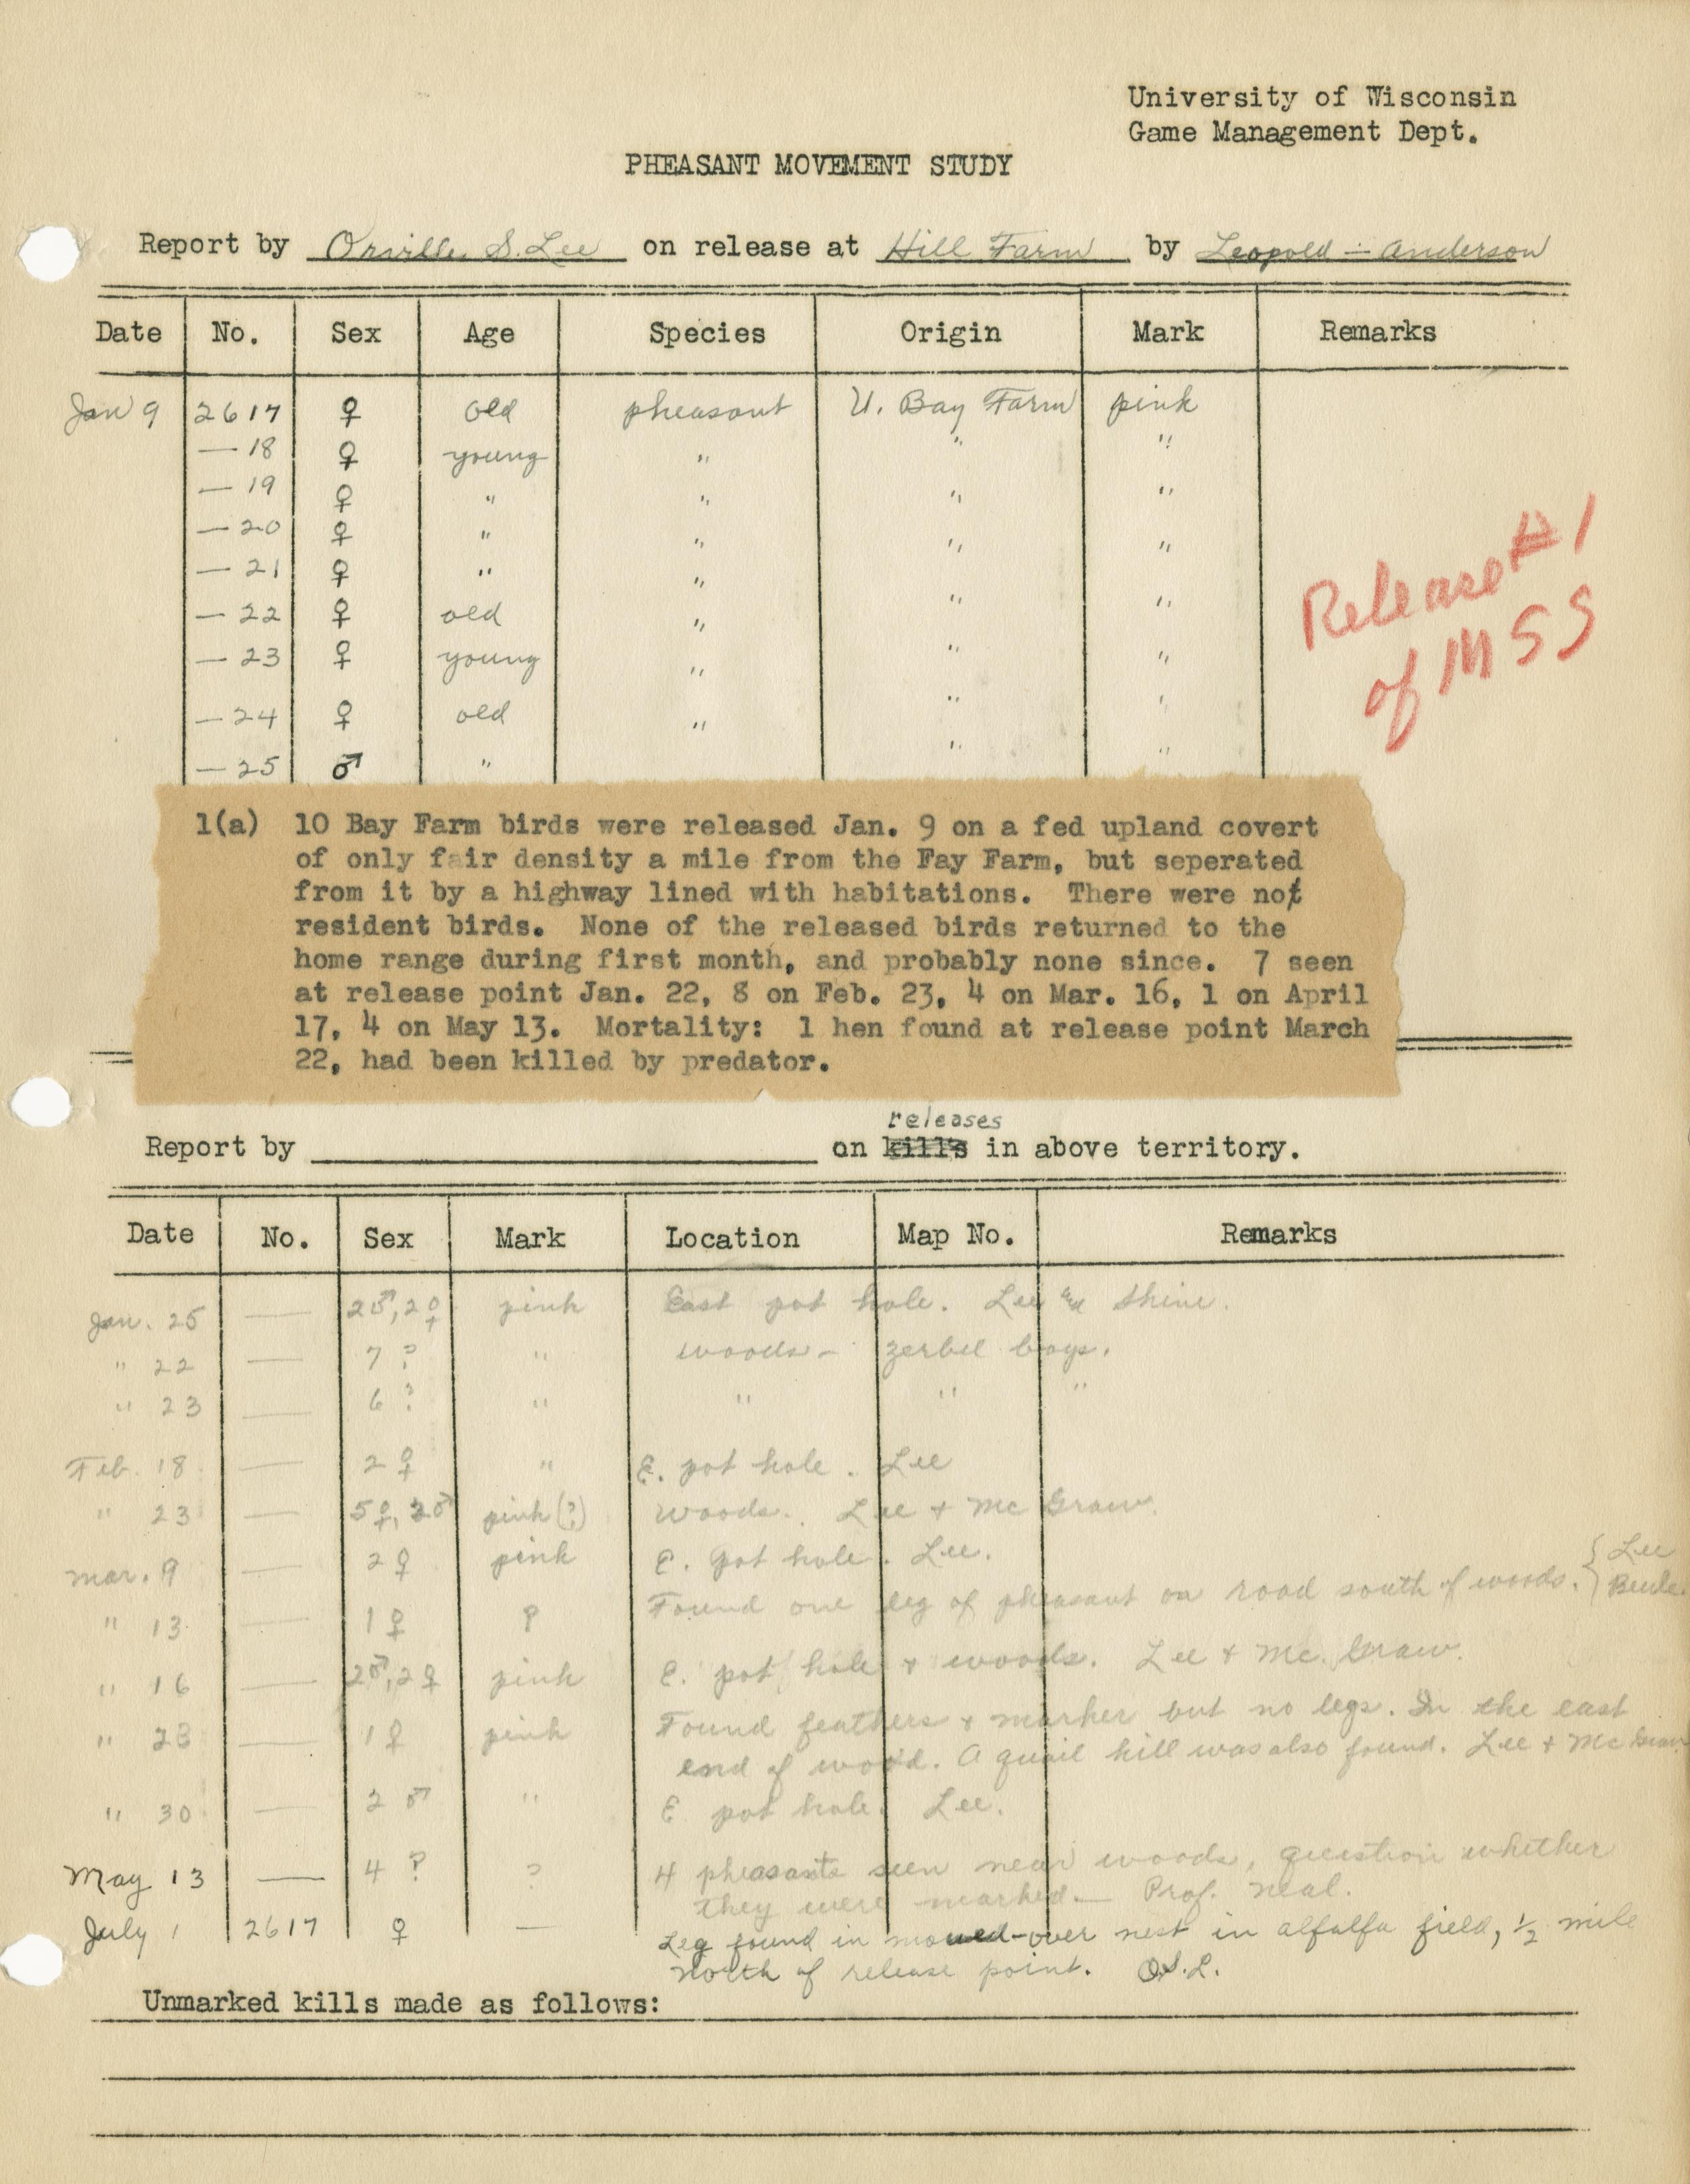 University of Wisconsin
Game Management Dept.
PHEASANT MOVEMENT STUDY
Report by Orville S. Lee on release at Hill Farm by Leopold - Anderson
Date No. Sex Age Species Origin Mark Remarks
Jan 9 2617 ♀ old pheasant U. Bay Farm pink
— 18 ♀ young " " "
— 19 ♀ " " " "
— 20 ♀ " " " "
— 21 ♀ " " " "
— 22 ♀ old " " "
— 23 ♀ young " " "
— 24 ♀ old " " "
— 25 ♂ " " "
Release #1
of MSS
1(a) 10 Bay Farm birds were released Jan. 9 on a fed upland covert
of only fair density a mile from the Fay Farm, but seperated
from it by a highway lined with habitations. There were not
resident birds. None of the released birds returned to the
home range during first month, and probably none since. 7 seen
at release point Jan. 22, 8 on Feb. 23, 4 on Mar. 16, 1 on April
17, 4 on May 13. Mortality: 1 hen found at release point March
22, had been killed by predator.
releases
Report by on kills in above territory.
Date No. Sex Mark Location Map No. Remarks
Jan. 25 — 2♂, 2♀ pink East pot hole. Lee and Shine.
" 22 — 7 ? " woods - Zerbel boys.
" 23 — 6 ? " " " "
Feb. 18 — 2 ♀ " E. pot hole. Lee
" 23 — 5♀, 3♂ pink (?) Woods. Lee + McGraw.
Mar. 9 — 2 ♀ pink E. pot hole. Lee.
" 13 — 1 ♀ ? Found one leg of pheasant on road south of woods. { Lee
16 — 2♂, 2♀ pink E. pot hole + woods. Lee + Mc. Graw.
" 23 — 1 ♀ pink Found feathers + marker but no legs. In the east
end of wood. A quail kill was also found. Lee + McGraw
" 30 — 2 ♂ " E pot hole. Lee.
May 13 — 4 ? ? 4 pheasants seen near woods, question whether
they were marked. — Prof. Neal.
July 1 2617 ♀ — Leg found in mowed-over nest in alfalfa field, ½ mile
north of release point. O.S.L.
Unmarked kills made as follows: